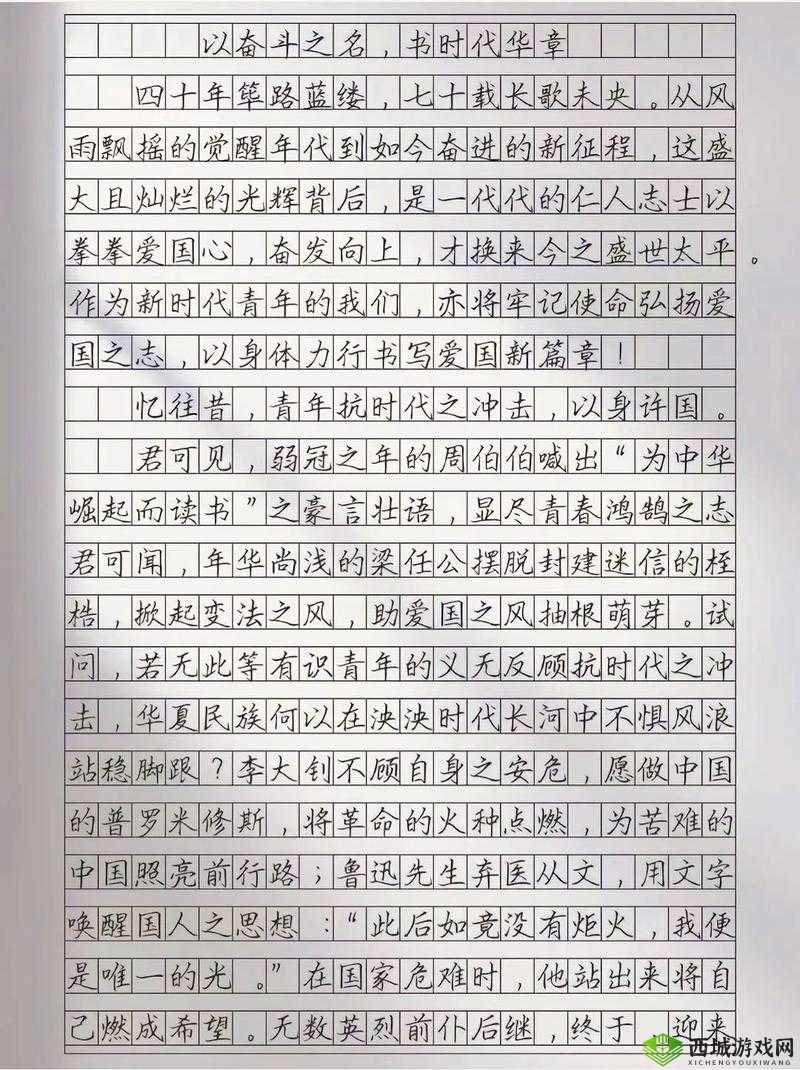 以奋斗之名，书时代华章
四十年筚路蓝缕，七十载长歌未央。从风
雨飘摇的觉醒年代到如今奋进的新征程，这盛
大且灿烂的光辉背后，是一代代的仁人志士以
拳拳爱国心，奋发向上，才换来今之盛世太平。
作为新时代青年的我们，亦将牢记使命弘扬爱
国之志，以身体力行书写爱国新篇章！
忆往昔，青年抗时代之冲击，以身许国。
君可见，弱冠之年的周伯伯喊出“为中华
崛起而读书”之豪言壮语，显尽青春鸿鹄之志
君可闻，年华尚浅的梁任公摆脱封建迷信的桎
梏，掀起变法之风，助爱国之风抽根萌芽。试
问，若无此等有识青年的义无反顾抗时代之冲
击，华夏民族何以在泱泱时代长河中不惧风浪
站稳脚跟？李大钊不顾自身之安危，愿做中国
的普罗米修斯，将革命的火种点燃，为苦难的
中国照亮前行路；鲁迅先生弃医从文，用文字
唤醒国人之思想：“此后如竟没有炬火，我便
是唯一的光。”在国家危难时，他站出来将自
己燃成希望。无数英烈前仆后继，终于，迎来
西城游戏网
XICHENGYOUXIWANG